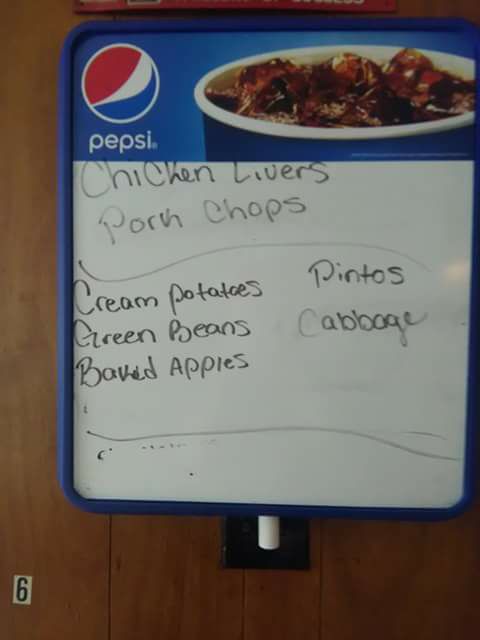 pepsi
Chicken Livers
Pork Chops
Cream potatoes
Green Beans
Baked Apples
Pintos
Cabbage
6